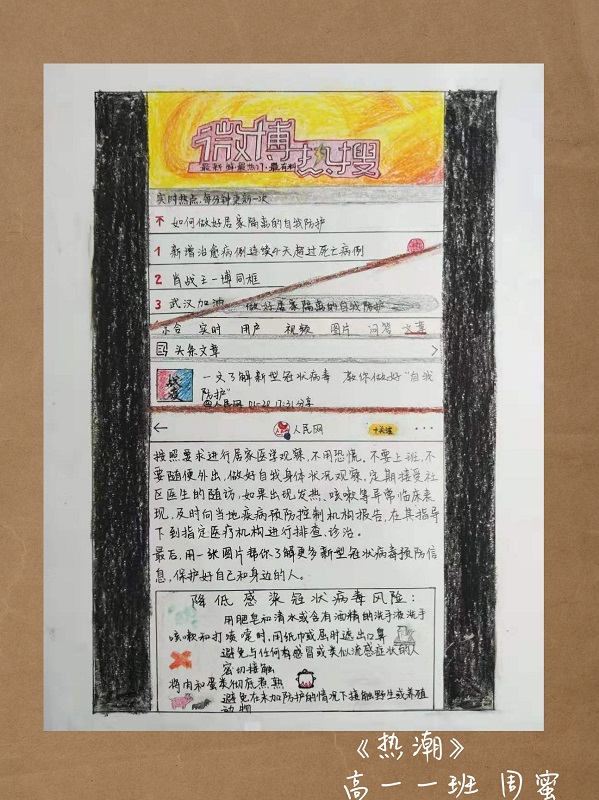 微博热搜
最新鲜·最热门·最有料
实时热点,每分钟更新一次
如何做好居家隔离的自我防护
1 新增治愈病例连续4天超过死亡病例
2 肖战王一博同框
3 武汉加油
做好居家隔离的自我防护
综合 实时 用户 视频 图片 问答 文章
头条文章
战疫
一文了解新型冠状病毒 教你做好“自我
防护”
@人民网 01-28 17:31分享
人民网
+关注
按照要求进行居家医学观察,不用恐慌。不要上班,不
要随便外出,做好自我身体状况观察,定期接受社
区医生的随访,如果出现发热、咳嗽等异常临床表
现,及时向当地疾病预防控制机构报告,在其指导
下到指定医疗机构进行排查、诊治。
最后,用一张图片帮你了解更多新型冠状病毒预防信
息,保护好自己和身边的人。
降低感染冠状病毒风险:
用肥皂和清水或含有酒精的洗手液洗手
咳嗽和打喷嚏时,用纸巾或屈肘遮住口鼻
避免与任何有感冒或类似流感症状的人
密切接触
将肉和蛋类彻底煮熟
避免在未加防护的情况下接触野生或养殖
动物
《热潮》
高一一班 周蜜